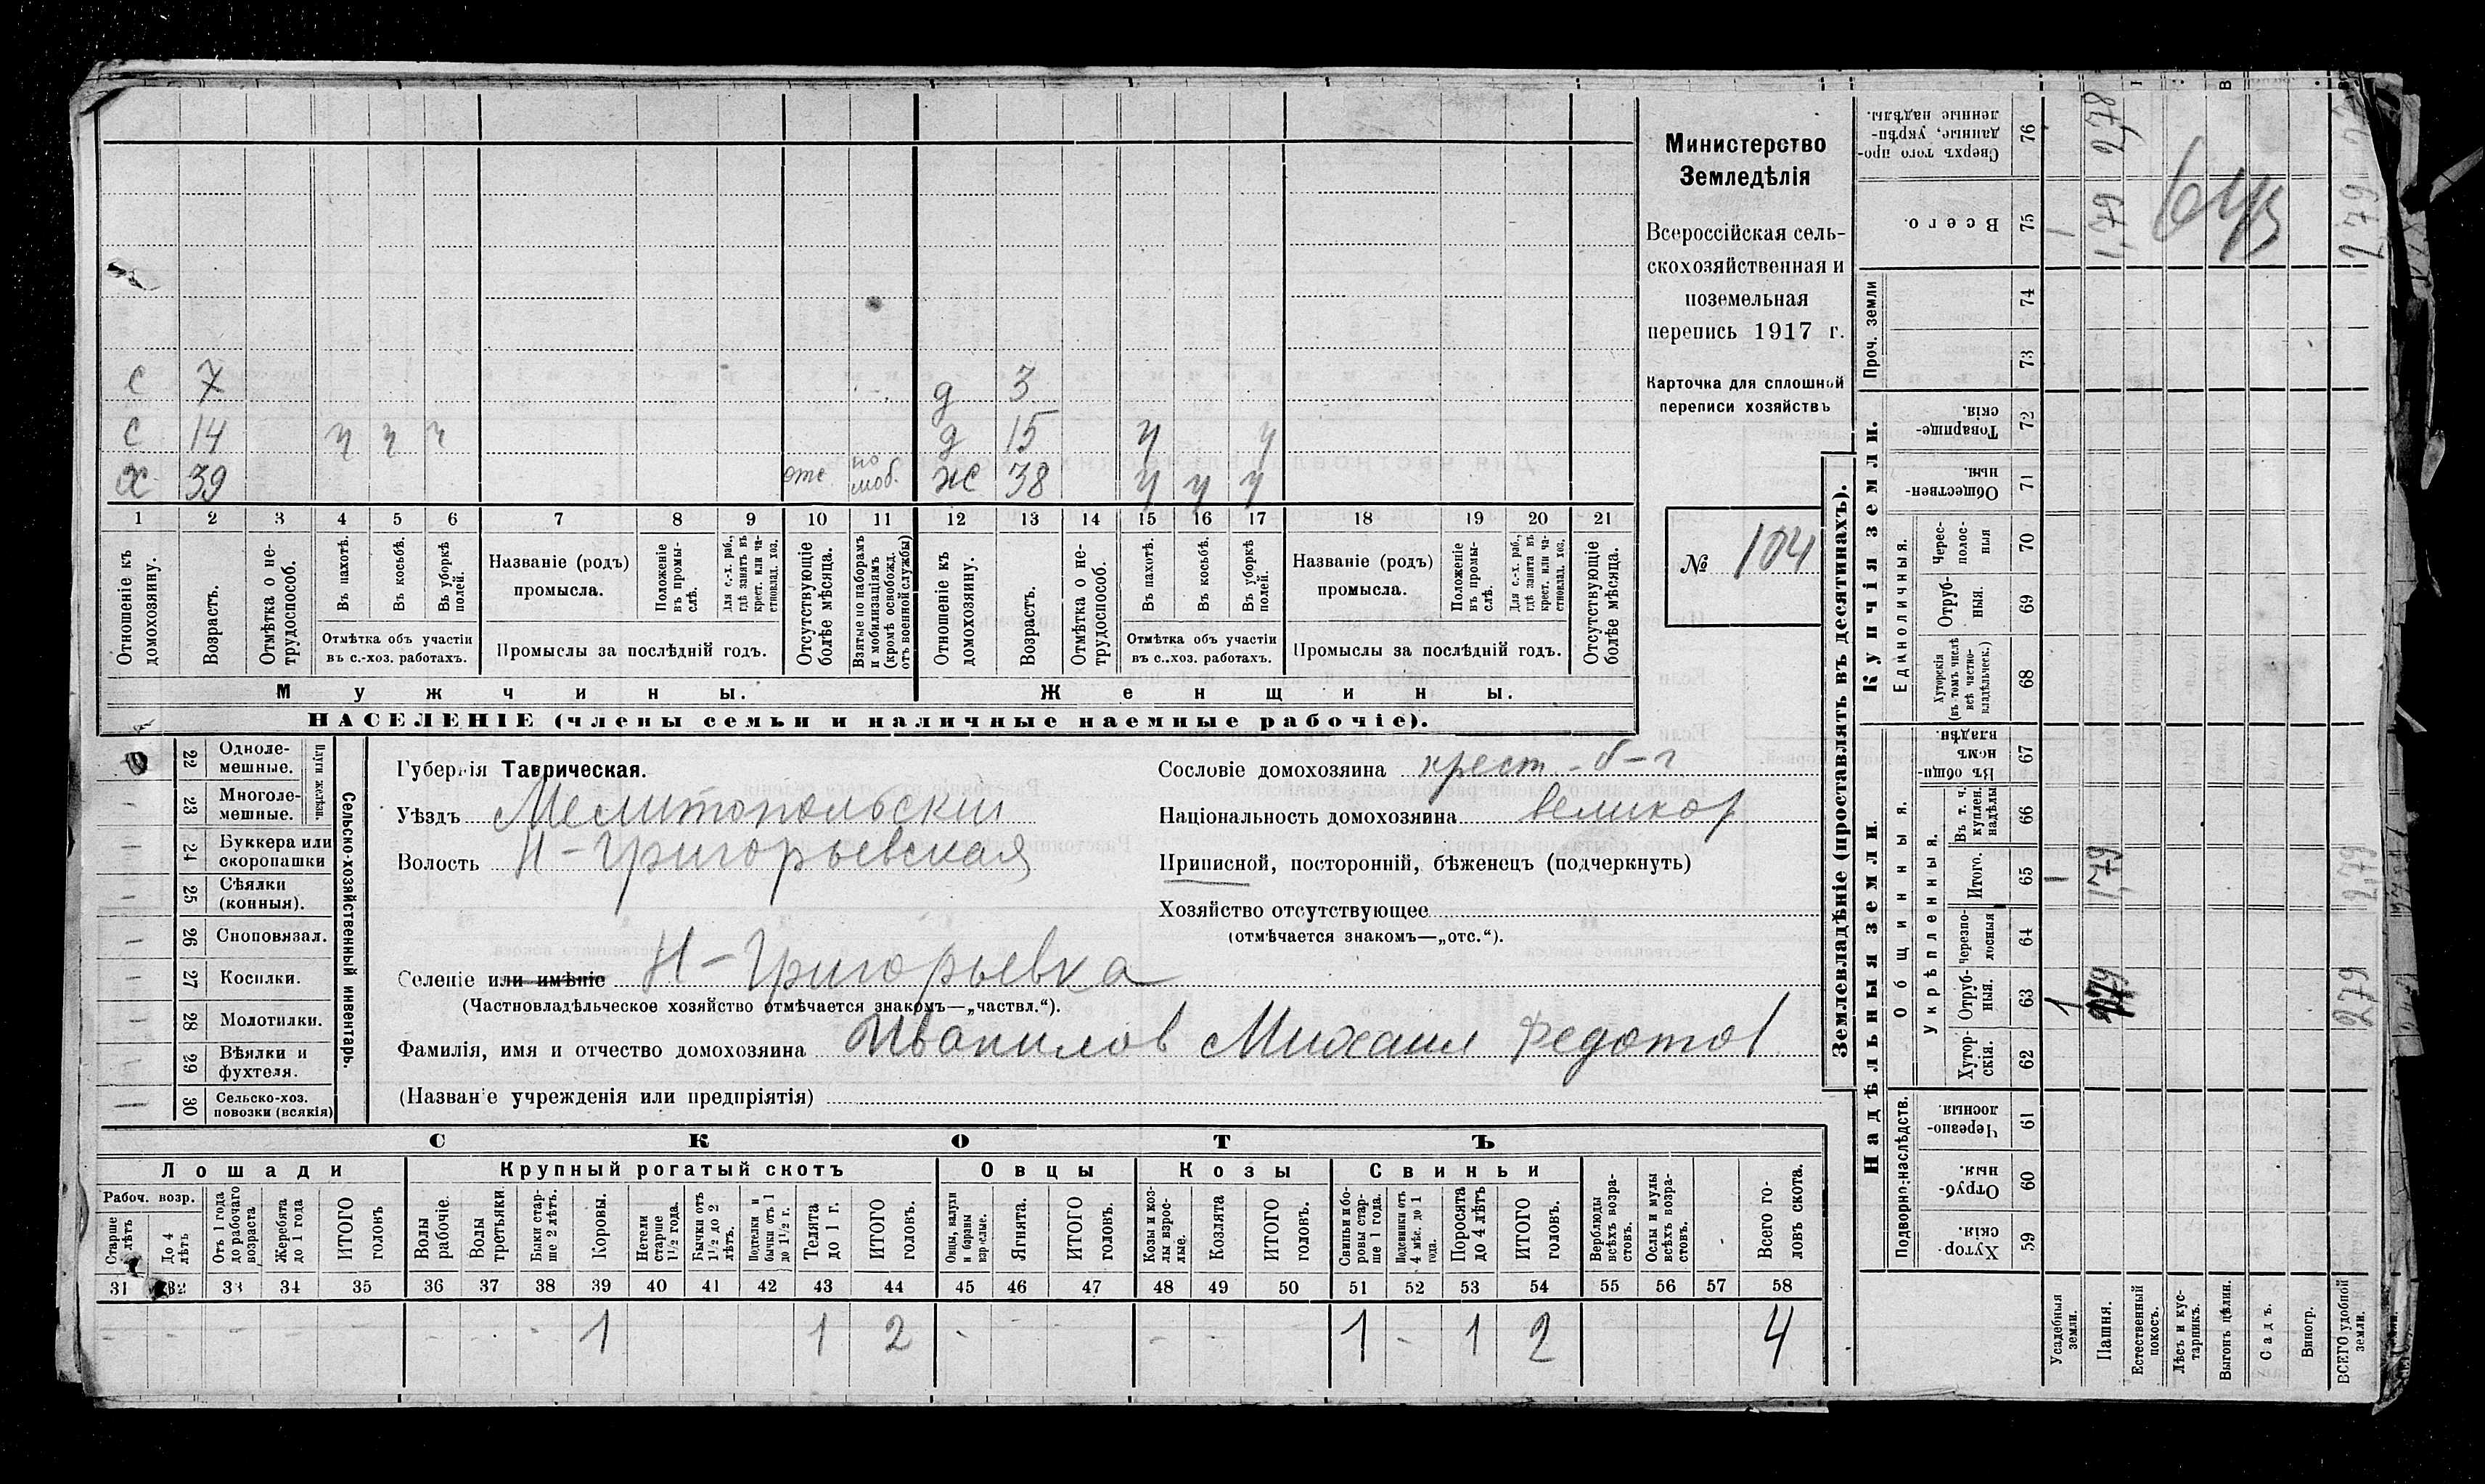 с 7 д 3
с 14 ч ч ч д 15 ч ч
х 39 отс по моб. же 38 ч ч ч
1 2 3 4 5 6 7 8 9 10 11 12 13 14 15 16 17 18 19 20 21
Отношеніе къ домохозяину.
Возрастъ.
Отмѣтка о нетрудоспособ.
Въ пахотѣ.
Въ косьбѣ.
Въ уборкѣ полей.
Отмѣтка объ участіи
въ с.-хоз. работахъ.
Названіе (родъ)
промысла.
Положеніе въ промыслѣ.
Для с.-х. раб., гдѣ занятъ въ крест. или частновлад. хоз.
Промыслы за послѣдній годъ.
Отсутствующіе болѣе мѣсяца.
Взятые по наборамъ и мобилизаціямъ (кромѣ освобожд. отъ военной службы)
Отношеніе къ домохозяину.
Возрастъ.
Отмѣтка о нетрудоспособ.
Въ пахотѣ.
Въ косьбѣ.
Въ уборкѣ полей.
Отмѣтка объ участіи
въ с.-хоз. работахъ.
Названіе (родъ)
промысла.
Положеніе въ промыслѣ.
Для с.-х. раб., гдѣ занята въ крест. или частновлад. хоз.
Промыслы за послѣдній годъ.
Отсутствующіе болѣе мѣсяца.
Мужчины. Женщины.
НАСЕЛЕНІЕ (члены семьи и наличные наемные рабочіе).
Министерство
Земледѣлія
Всероссійская сель-
скохозяйственная и
поземельная
перепись 1917 г.
Карточка для сплошной
переписи хозяйствъ
№ 104
22 Одноле-
мешные.
23 Многоле-
мешные.
Плуги желѣзн.
24 Буккера или
скоропашки
25 Сѣялки
(конныя).
26 Сноповязал.
27 Косилки.
28 Молотилки.
29 Вѣялки и
фухтеля.
30 Сельско-хоз.
повозки (всякія)
Сельско-хозяйственный инвентарь.
Губернія Таврическая.
Уѣздъ Мелитопольскій
Волость Н-Григорьевская
Селеніе или имѣніе Н-Григорьевка
(Частновладѣльческое хозяйство отмѣчается знакомъ—„частвл.“).
Фамилія, имя и отчество домохозяина Ивапилов Михаил Федотов
(Названіе учрежденія или предпріятія)
Сословіе домохозяина крест-б-г
Національность домохозяина великор
Приписной, посторонній, бѣженецъ (подчеркнуть)
Хозяйство отсутствующее
(отмѣчается знакомъ—„отс.“).
СКОТЪ
Лошади Крупный рогатый скотъ Овцы Козы Свиньи
Рабоч. возр.
Старше 4 лѣтъ
До 4 лѣтъ
Отъ 1 года до рабочаго возраста
Жеребята до 1 года
ИТОГО головъ
Волы рабочіе.
Волы третьяки.
Быки старше 2 лѣтъ.
Коровы.
Нетели старше 1½ года.
Бычки отъ 1½ до 2 лѣтъ.
Подтелки и бычки отъ 1 до 1½ г.
Телята до 1 г.
ИТОГО головъ.
Овцы, валухи и бараны взрослые.
Ягнята.
ИТОГО головъ.
Козы и козлы взрослые.
Козлята
ИТОГО головъ.
Свиньи и боровы старше 1 года.
Подсвинки отъ 4 мѣс. до 1 года.
Поросята до 4 лѣтъ
ИТОГО головъ.
Верблюды всѣхъ возрастовъ.
Ослы и мулы всѣхъ возрастовъ.
Всего головъ скота.
31 32 33 34 35 36 37 38 39 40 41 42 43 44 45 46 47 48 49 50 51 52 53 54 55 56 57 58
- - - - - - - 1 1 2 - - - 1 - 1 2 4
Землевладѣніе (проставлять въ десятинахъ).
Надѣльныя земли. Купчія земли. Проч. земли
Подворно-наслѣдств. Общинныя. Единоличныя.
Укрѣпленныя.
59 Хуторскія
60 Отрубныя.
61 Черезполосныя.
62 Хуторскія.
63 Отрубныя. 1 279
64 черезполосныя
65 Итого. 1 1,79 2,79
66 Въ т. ч. куплен. надѣлы
67 Въ общинномъ владѣн.
68 Хуторскія (въ томъ числѣ всѣ частновладѣльческ.)
69 Отрубныя.
70 Чересполосныя
71 Общественныя.
72 Товарищескія.
73
74
75 Всего. 1 1,79 2 79
76 Сверхъ того проданные, укрѣпленные надѣлы. 2,78
Усадебныя земли.
Пашня.
Естественный покосъ.
Лѣсъ и кустарникъ.
Выгонъ цѣлин.
Садъ.
Виногр.
ВСЕГО удобной земли.